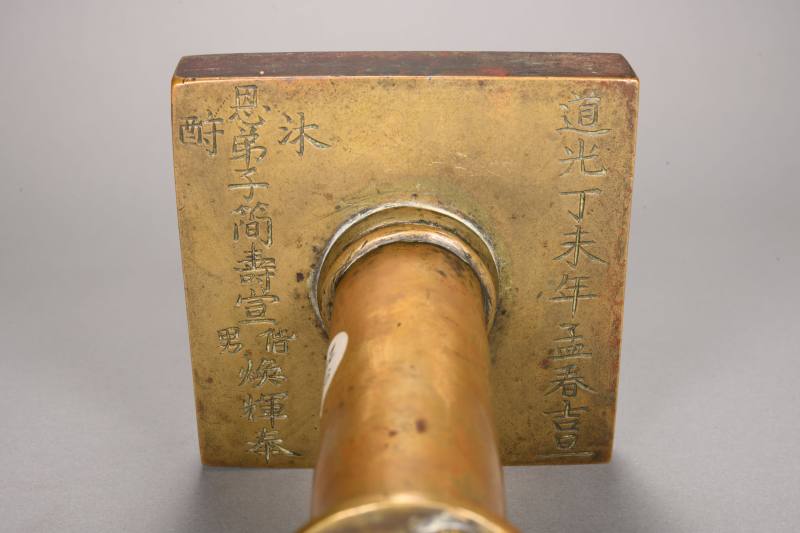 道光丁未年孟春吉旦
沐
恩弟子簡壽宣偕男煥輝奉
酧